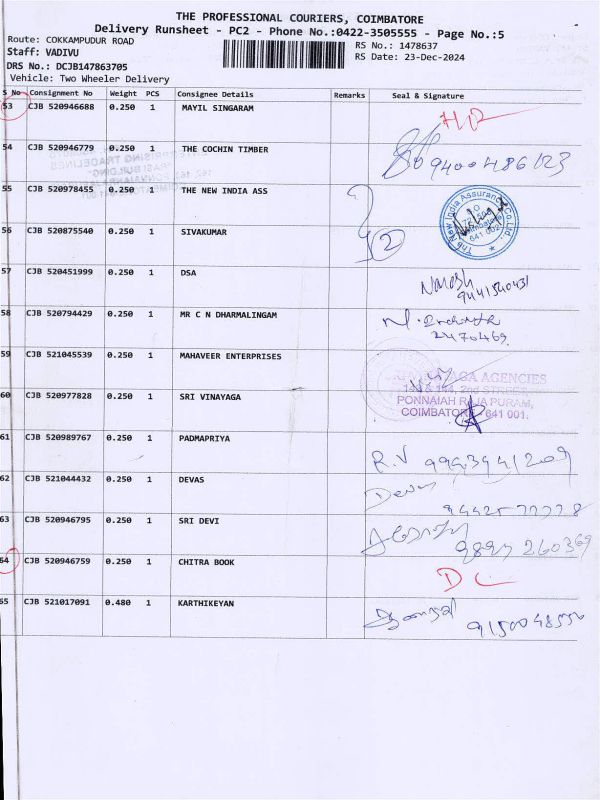 THE PROFESSIONAL COURIERS, COIMBATORE
Delivery Runsheet - PC2 - Phone No.:0422-3505555 - Page No.:5
Route: COKKAMPUDUR ROAD
RS No.: 1478637
Staff: VADIVU
RS Date: 23-Dec-2024
DRS No.: DCJB147863705
Vehicle: Two Wheeler Delivery
S No Consignment No Weight PCS Consignee Details Remarks Seal & Signature
53 CJB 520946688 0.250 1 MAYIL SINGARAM
54 CJB 520946779 0.250 1 THE COCHIN TIMBER 9400486123
55 CJB 520978455 0.250 1 THE NEW INDIA ASS The New India Assurance Co. Ltd. 641 002
56 CJB 520875540 0.250 1 SIVAKUMAR 2
57 CJB 520451999 0.250 1 DSA
58 CJB 520794429 0.250 1 MR C N DHARMALINGAM 2470469
59 CJB 521045539 0.250 1 MAHAVEER ENTERPRISES
AGENCIES
143 & 144, 2nd STREET,
60 CJB 520977828 0.250 1 SRI VINAYAGA PONNAIAH RAJA PURAM,
COIMBATORE 641 001.
61 CJB 520989767 0.250 1 PADMAPRIYA R.V
62 CJB 521044432 0.250 1 DEVAS Devas
63 CJB 520946795 0.250 1 SRI DEVI 9894 260369
64 CJB 520946759 0.250 1 CHITRA BOOK DC
65 CJB 521017091 0.480 1 KARTHIKEYAN